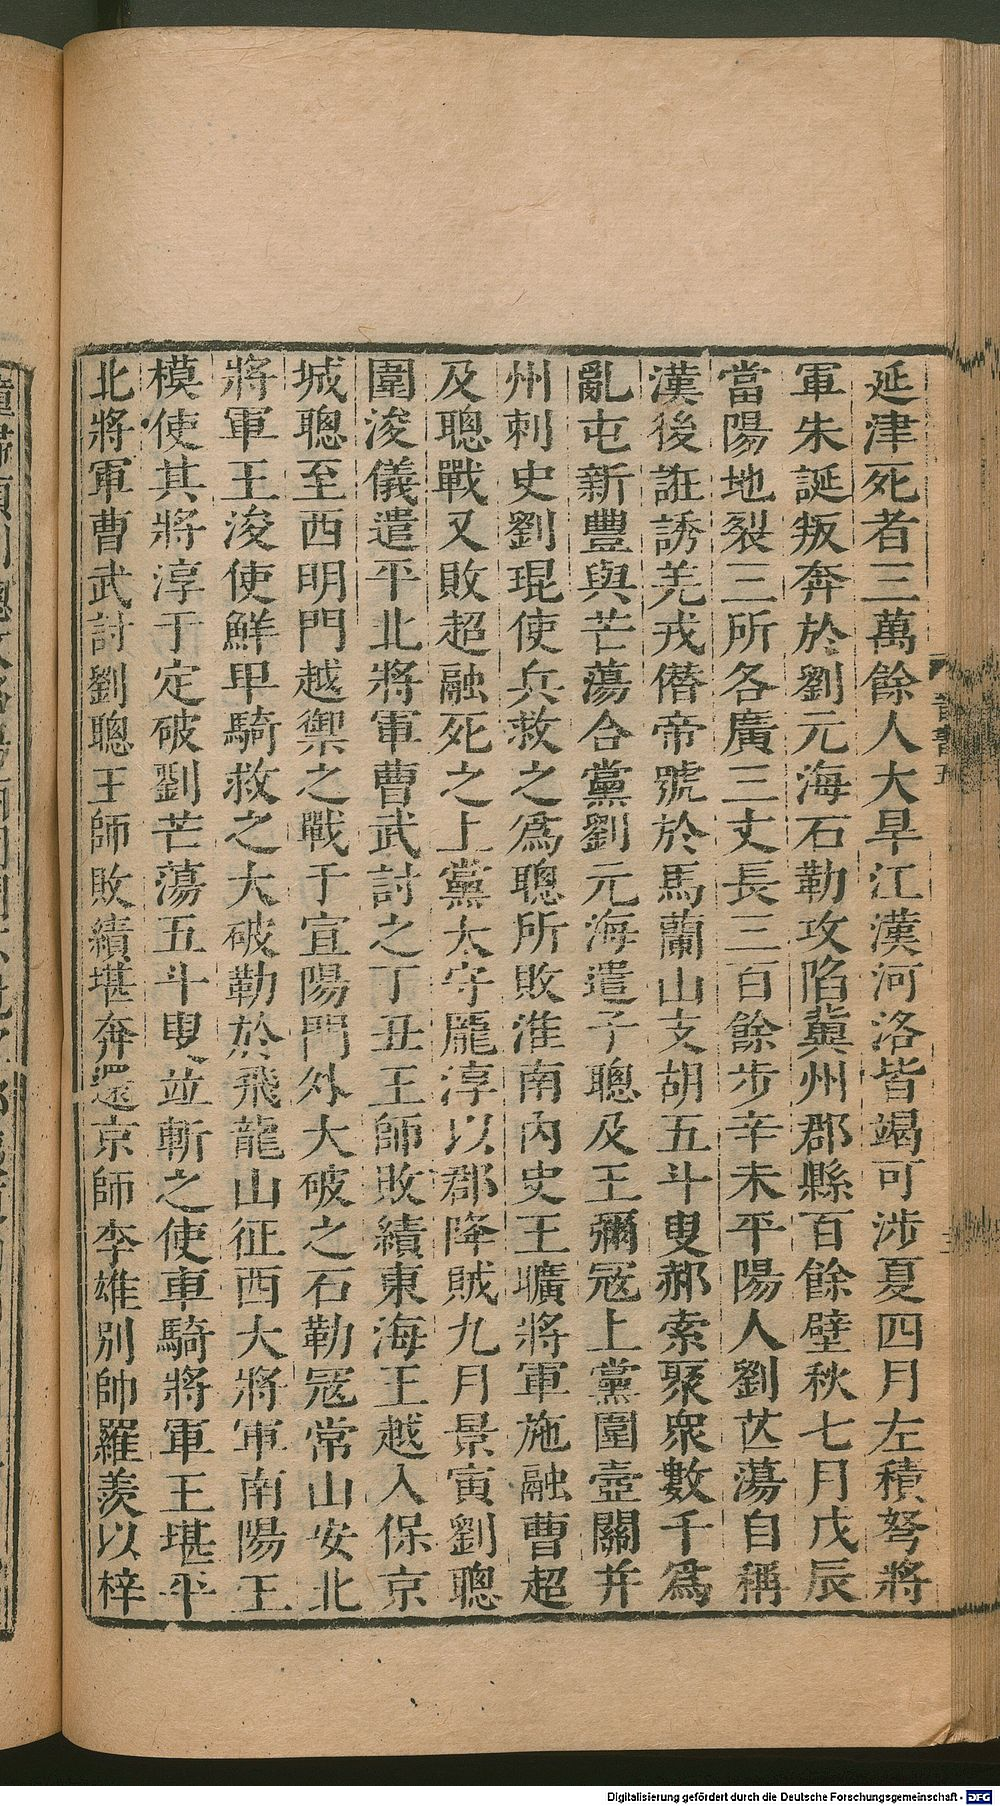 延津死者三萬餘人大旱江漢河洛皆竭可涉夏四月左積弩將
軍朱誕叛奔於劉元海石勒攻陷冀州郡縣百餘壁秋七月戊辰
當陽地裂三所各廣三丈長三百餘步辛未平陽人劉芒蕩自稱
漢後誑誘羌戎僭帝號於馬蘭山支胡五斗叟郝索聚衆數千爲
亂屯新豐與芒蕩合黨劉元海遣子聰及王彌寇上黨圍壺關并
州刺史劉琨使兵救之爲聰所敗淮南內史王曠將軍施融曹超
及聰戰又敗超融死之上黨太守龐淳以郡降賊九月景寅劉聰
圍浚儀遣平北將軍曹武討之丁丑王師敗績東海王越入保京
城聰至西明門越禦之戰于宣陽門外大破之石勒寇常山安北
將軍王浚使鮮卑騎救之大破勒於飛龍山征西大將軍南陽王
模使其將淳于定破劉芒蕩五斗叟並斬之使車騎將軍王堪平
北將軍曹武討劉聰王師敗績堪奔還京師李雄別帥羅羨以梓
Digitalisierung gefördert durch die Deutsche Forschungsgemeinschaft - DFG